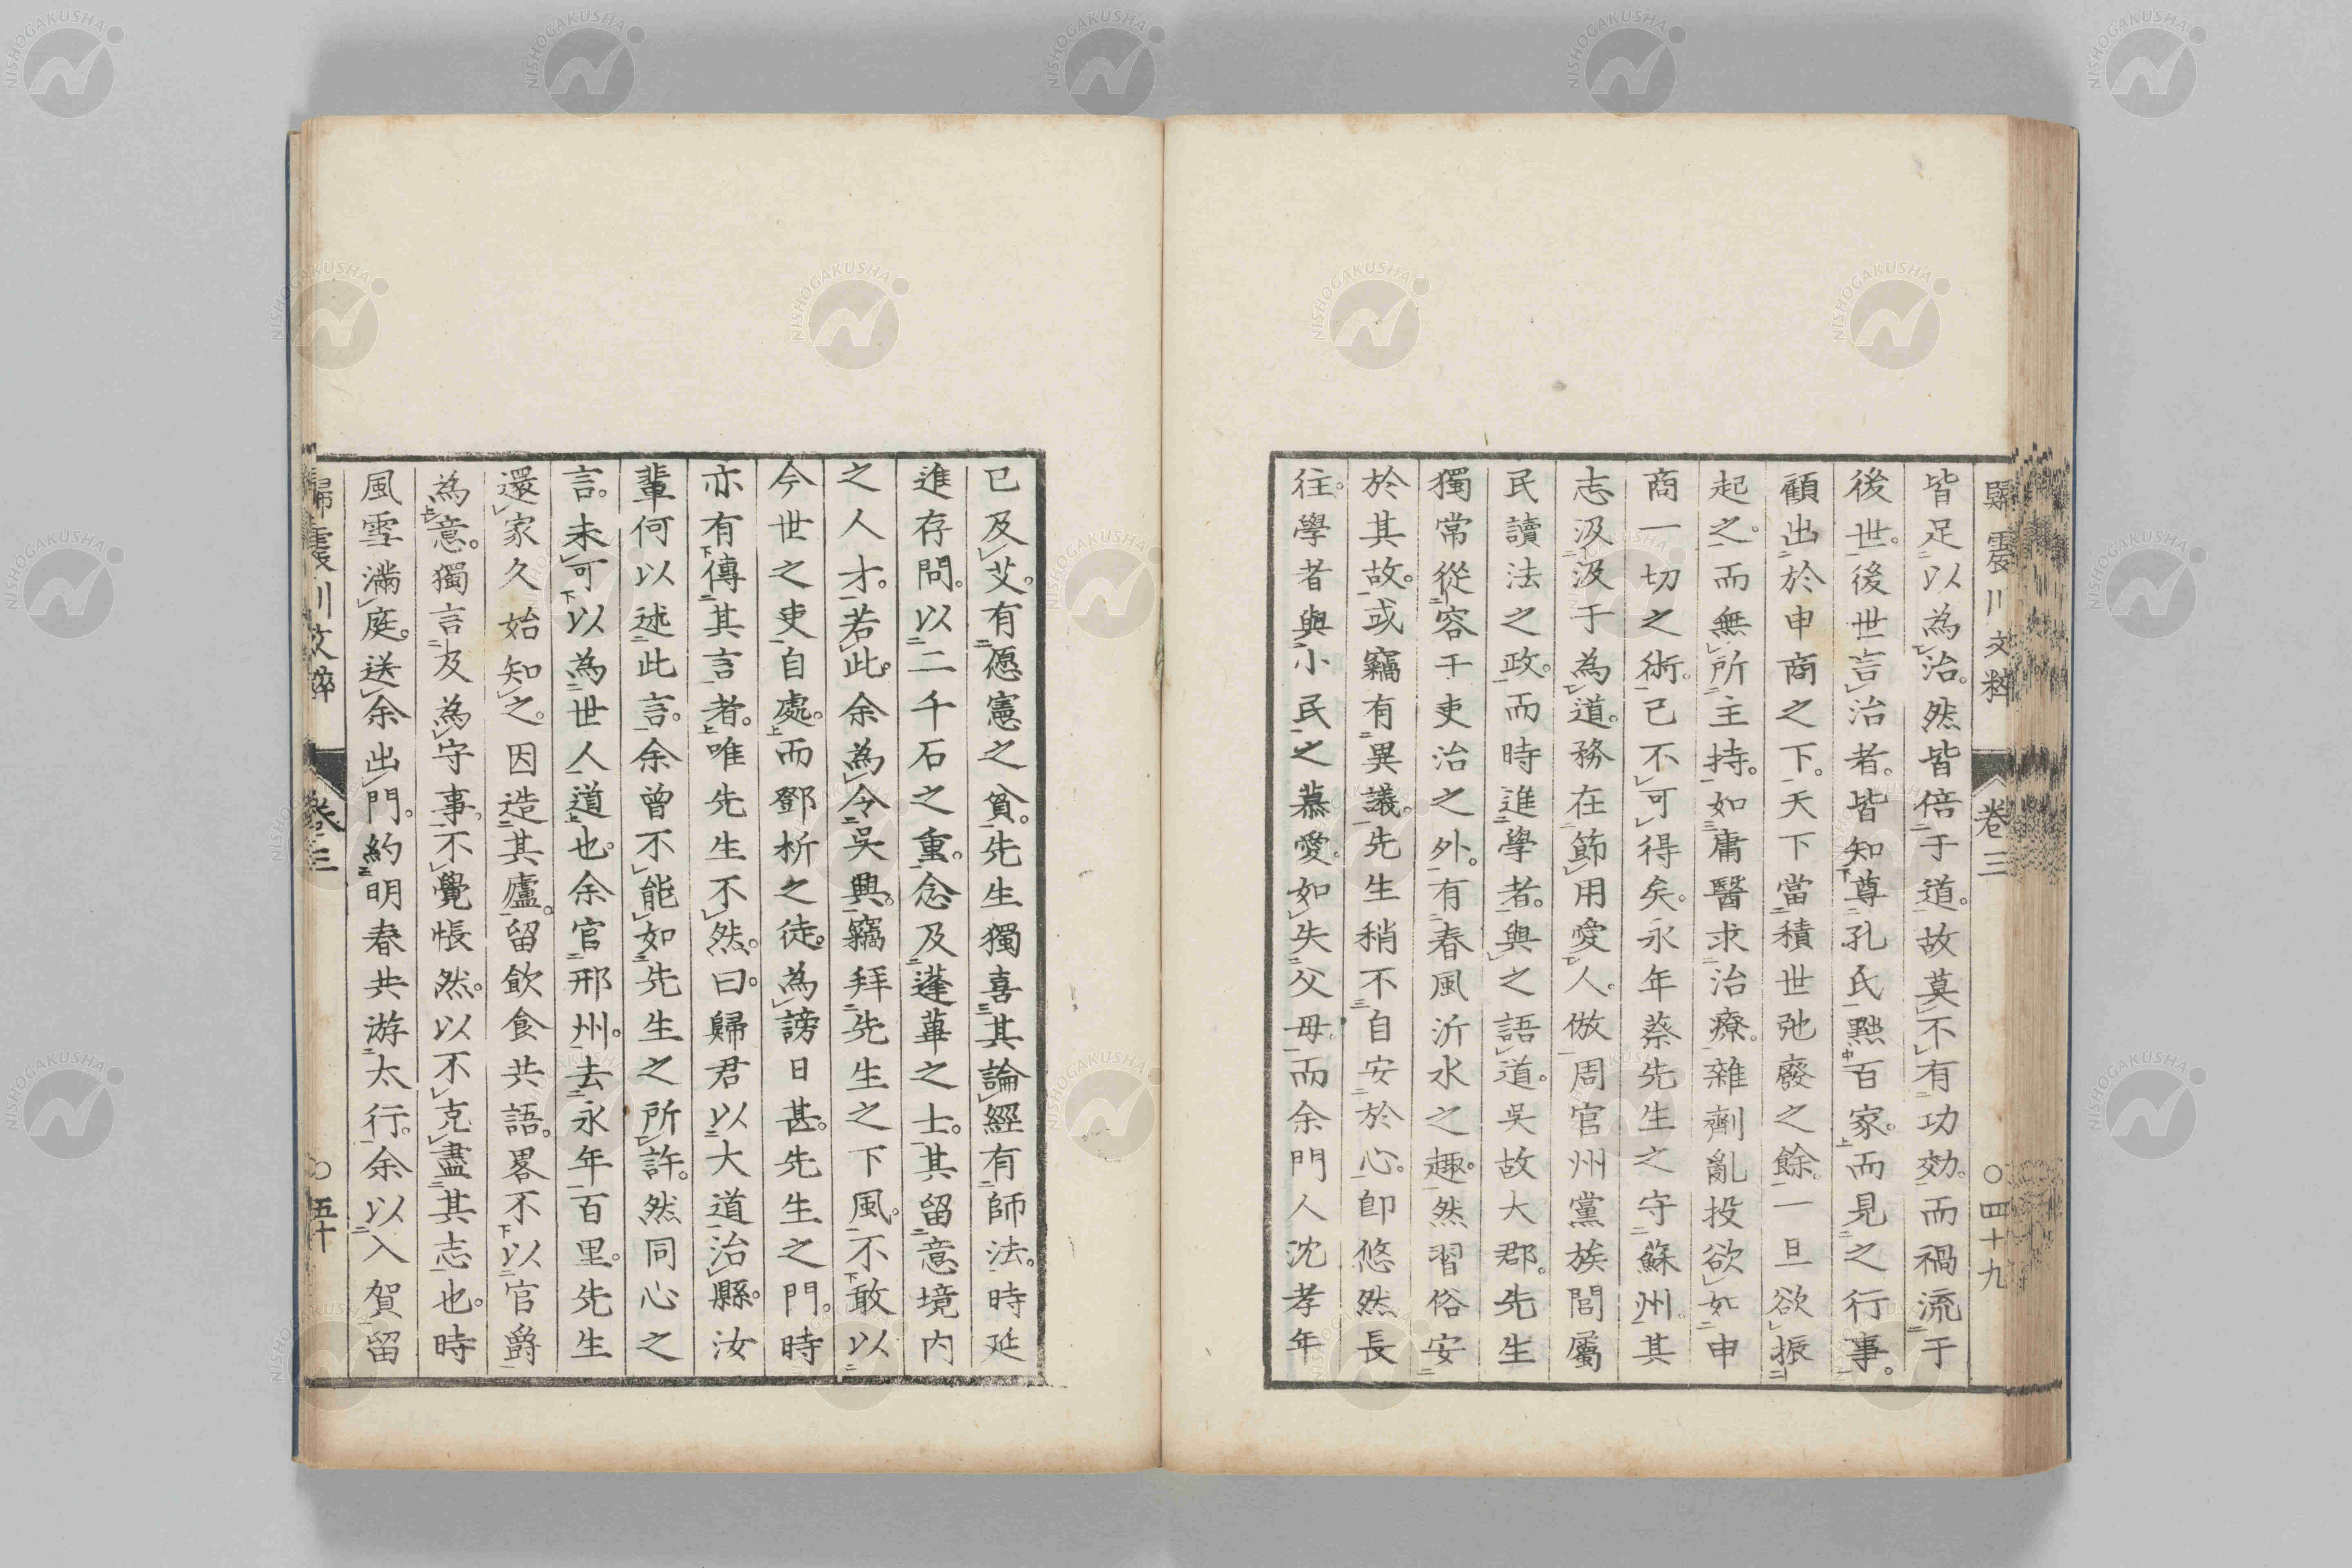 歸震川文粹 卷三 〇四十九
皆足以為治。然皆倍于道。故莫不有功効。而禍流于
後世。後世言治者。皆知尊孔氏黜百家。而見之行事。
顧出於申商之下。天下當積世弛廢之餘。一旦欲振
起之。而無所主持。如庸醫求治療。雜劑亂投欲如申
商一切之術。已不可得矣。永年蔡先生之守蘇州。其
志汲汲于為道。務在節用愛人。倣周官州黨族閭屬
民讀法之政。而時進學者。與之語道。吳故大郡。先生
獨常從容干吏治之外。有春風沂水之趣。然習俗安
於其故。或竊有異議。先生稍不自安於心。即悠然長
往。學者與小民之慕愛。如失父母。而余門人沈孝年
已及艾。有愿憲之貧。先生獨喜其論經有師法。時延
進存問。以二千石之重。念及蓬蓽之士。其留意境内
之人才。若此。余為令吳興。竊拜先生之下風。不敢以
今世之吏自處。而鄧析之徒。為謗日甚。先生之門。時
亦有傳其言者。唯先生不然。曰。歸君以大道治縣。汝
輩何以述此言。余曾不能如先生之所許。然同心之
言。未可以為世人道也。余官邢州。去永年百里。先生
還家久始知之。因造其廬。留飲食共語。畧不以官爵
為意。獨言及為守事。不覺悵然。以不克盡其志也。時
風雪滿庭。送余出門。約明春共游太行。余以入賀留
歸震川文粹 卷三 〇五十
NISHOGAKUSHA